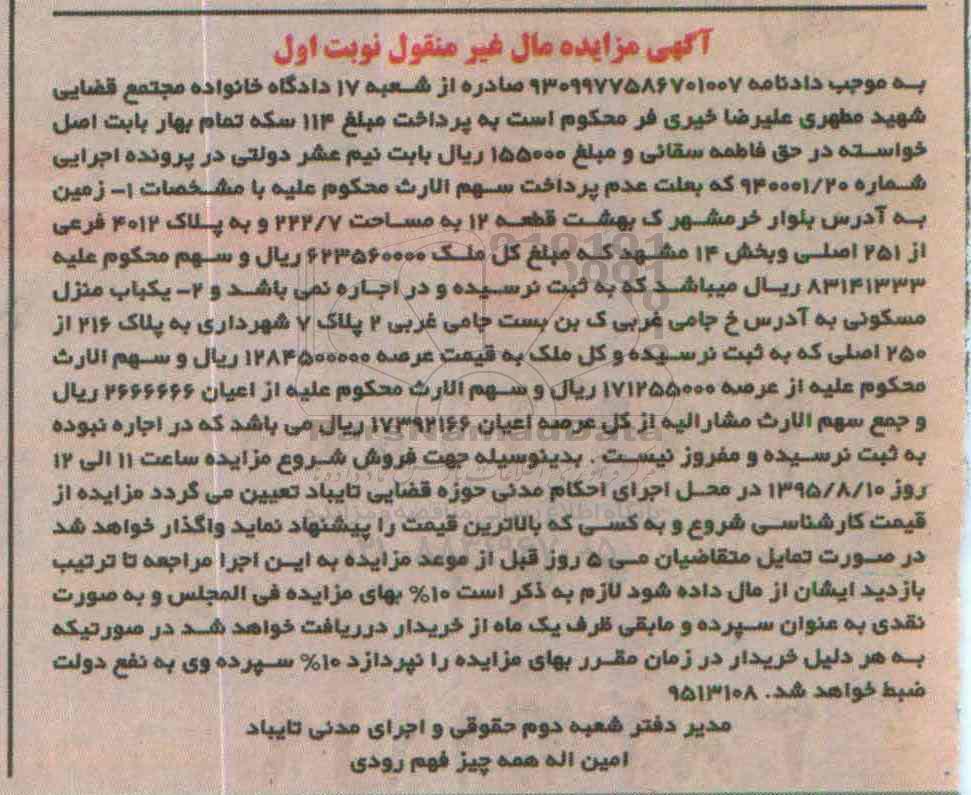 آگهی مزایده مال غیر منقول نوبت اول
به موجب دادنامه ۹۳۰۹۹۷۷۵۸۶۷۰۱۰۰۷ صادره از شعبه ۱۷ دادگاه خانواده مجتمع قضایی
شهید مطهری علیرضا خیری فر محکوم است به پرداخت مبلغ ۱۱۴ سکه تمام بهار بابت اصل
خواسته در حق فاطمه سقائی و مبلغ ۱۵۵۰۰۰ ریال بابت نیم عشر دولتی در پرونده اجرایی
شماره ۹۴۰۰۰۱/۲۰ که بعلت عدم پرداخت سهم الارث محکوم علیه با مشخصات ۱- زمین
به آدرس بلوار خرمشهر ک بهشت قطعه ۱۲ به مساحت ۲۲۲/۷ و به پلاک ۴۰۱۲ فرعی
از ۲۵۱ اصلی وبخش ۱۴ مشهد که مبلغ کل ملک ۶۲۳۵۶۰۰۰۰ ریال و سهم محکوم علیه
۸۳۱۴۱۳۳۳ ریال میباشد که به ثبت نرسیده و در اجاره نمی باشد و ۲- یکباب منزل
مسکونی به آدرس خ جامی غربی ک بن بست جامی غربی ۲ پلاک ۷ شهرداری به پلاک ۲۱۶ از
۲۵۰ اصلی که به ثبت نرسیده و کل ملک به قیمت عرصه ۱۲۸۴۵۰۰۰۰۰ ریال و سهم الارث
محکوم علیه از عرصه ۱۷۱۲۵۵۰۰۰ ریال و سهم الارث محکوم علیه از اعیان ۲۶۶۶۶۶۶ ریال
و جمع سهم الارث مشارالیه از کل عرصه اعیان ۱۷۳۹۲۱۶۶ ریال می باشد که در اجاره نبوده
به ثبت نرسیده و مفروز نیست . بدینوسیله جهت فروش شروع مزایده ساعت ۱۱ الی ۱۲
روز ۱۳۹۵/۸/۱۰ در محل اجرای احکام مدنی حوزه قضایی تایباد تعیین می گردد مزایده از
قیمت کارشناسی شروع و به کسی که بالاترین قیمت را پیشنهاد نماید واگذار خواهد شد
در صورت تمایل متقاضیان می ۵ روز قبل از موعد مزایده به این اجرا مراجعه تا ترتیب
بازدید ایشان از مال داده شود لازم به ذکر است ۱۰% بهای مزایده فی المجلس و به صورت
نقدی به عنوان سپرده و مابقی ظرف یک ماه از خریدار درریافت خواهد شد در صورتیکه
به هر دلیل خریدار در زمان مقرر بهای مزایده را نپردازد ۱۰% سپرده وی به نفع دولت
ضبط خواهد شد. ۹۵۱۳۱۰۸
مدیر دفتر شعبه دوم حقوقی و اجرای مدنی تایباد
امین اله همه چیز فهم رودی